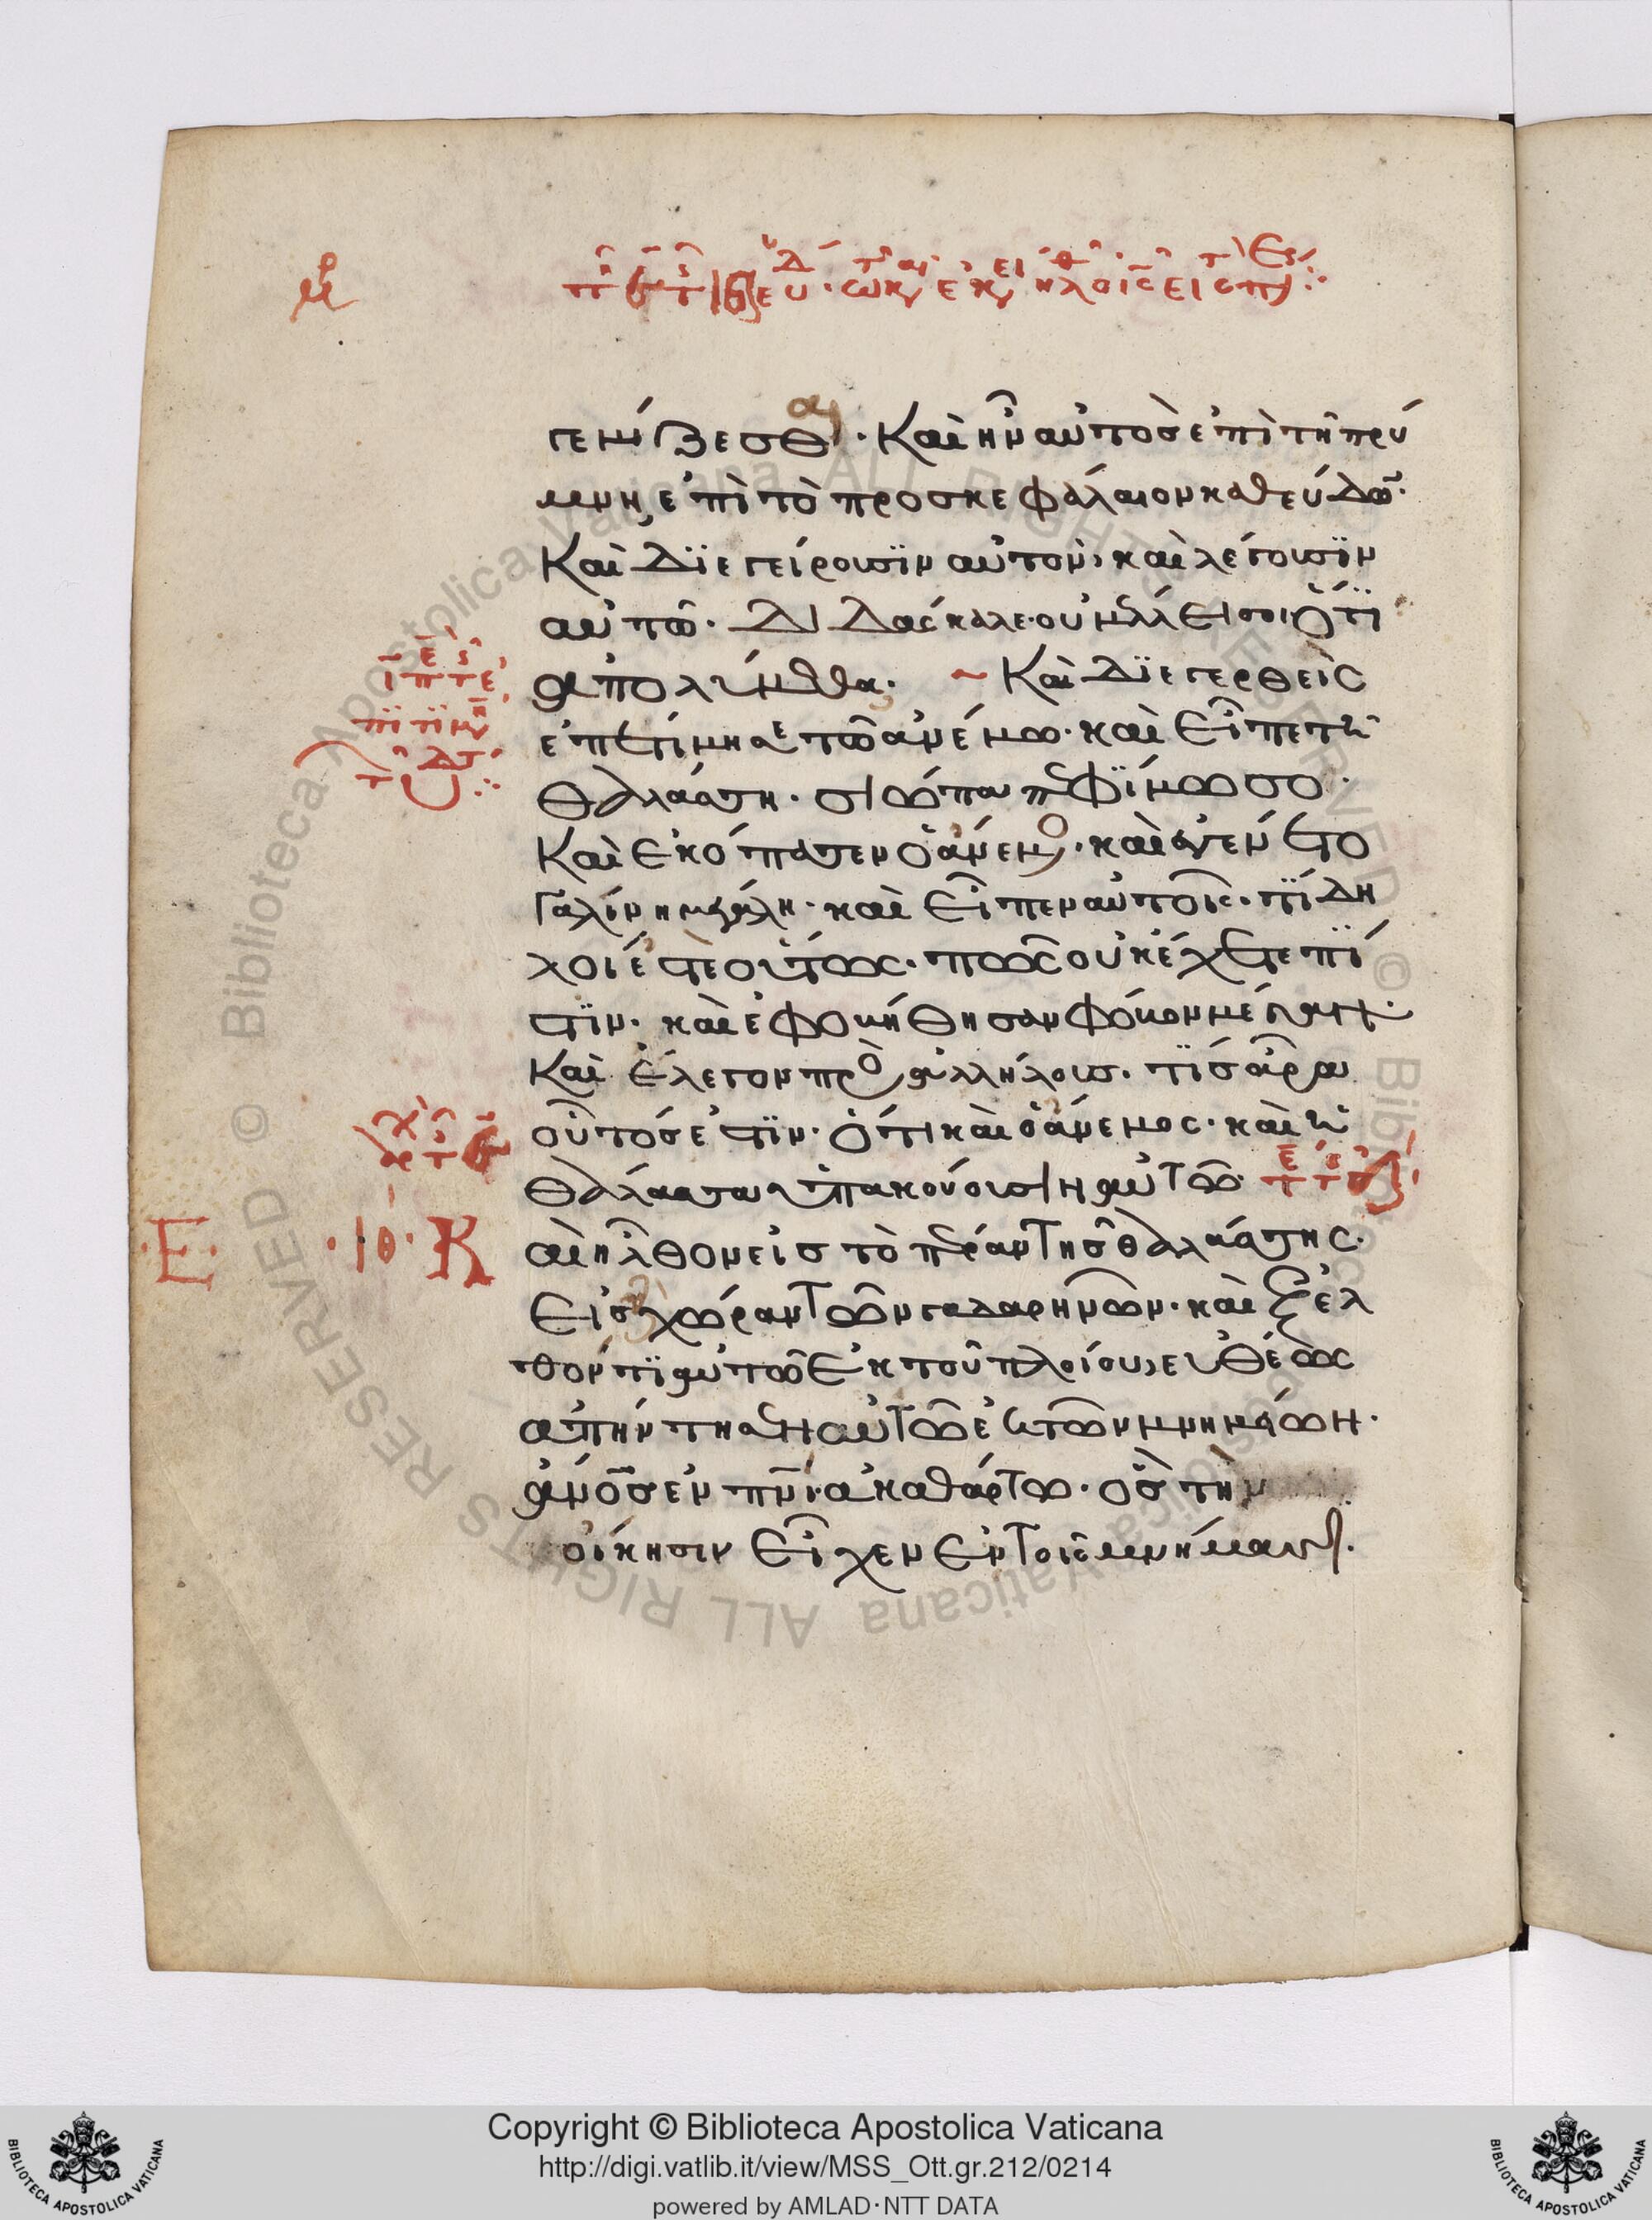 γεμίζεσθαι· Καὶ ἦν αὐτὸς ἐπὶ τῇ πρύ
μνῃ ἐπὶ τὸ προσκεφάλαιον καθεύδων·
Καὶ διεγείρουσϊν αὐτόν, καὶ λέγουσϊν
αὐτῷ· Διδάσκαλε· οὐ μέλλει σοι ὅτϊ
ἀπολύμεθα· Καὶ διεγερθεὶς
ἐπετίμησε τῷ ἀνέμω· καὶ εἶπε τῆ
θαλάσση· σιώπα πεφϊμωσο·
Καὶ ἐκόπασεν ὁ ἄνεμος· καὶ ἐγένετο
γαλήνη μεγάλη· καὶ εἶπεν αὐτοῖς· τϊ δη
λοί ἐστε οὕτως· πῶς οὐκ ἔχετε πί
στϊν· καὶ ἐφοβήθησαν φόβον μέγαν·
Καὶ ἔλεγον πρὸς ἀλλήλους· τϊς ἆρα
οὗτός ἐστϊν· ὅτι καὶ ὁ ἄνεμος· καὶ ἡ
θάλασσα ὑπακούουσιν αὐτῶ·
Ε ·ΙΘ· Κ
αὶ ἦλθον εἰς τὸ πέραν τῆς θαλάσσης·
Εἰς χώραν τῶν γαδαρηνῶν· καὶ ἐξελ
θόντϊ αὐτῶ ἐκ τοῦ πλοίου, εὐθέως
ἀπήντησεν αὐτῶ ἐκ τῶν μνημείων·
ἄνος ἐν πνι ἀκαθάρτω· ὃς τὴν
οἴκησιν εἶχεν ἐν τοῖς μνήμασι·
Copyright © Biblioteca Apostolica Vaticana
http://digi.vatlib.it/view/MSS_Ott.gr.212/0214
powered by AMLAD·NTT DATA
BIBLIOTECA APOSTOLICA VATICANA
BIBLIOTECA APOSTOLICA VATICANA
© Biblioteca Apostolica Vaticana ALL RIGHTS RESERVED © Biblioteca Apostolica Vaticana ALL RIGHTS RESERVED